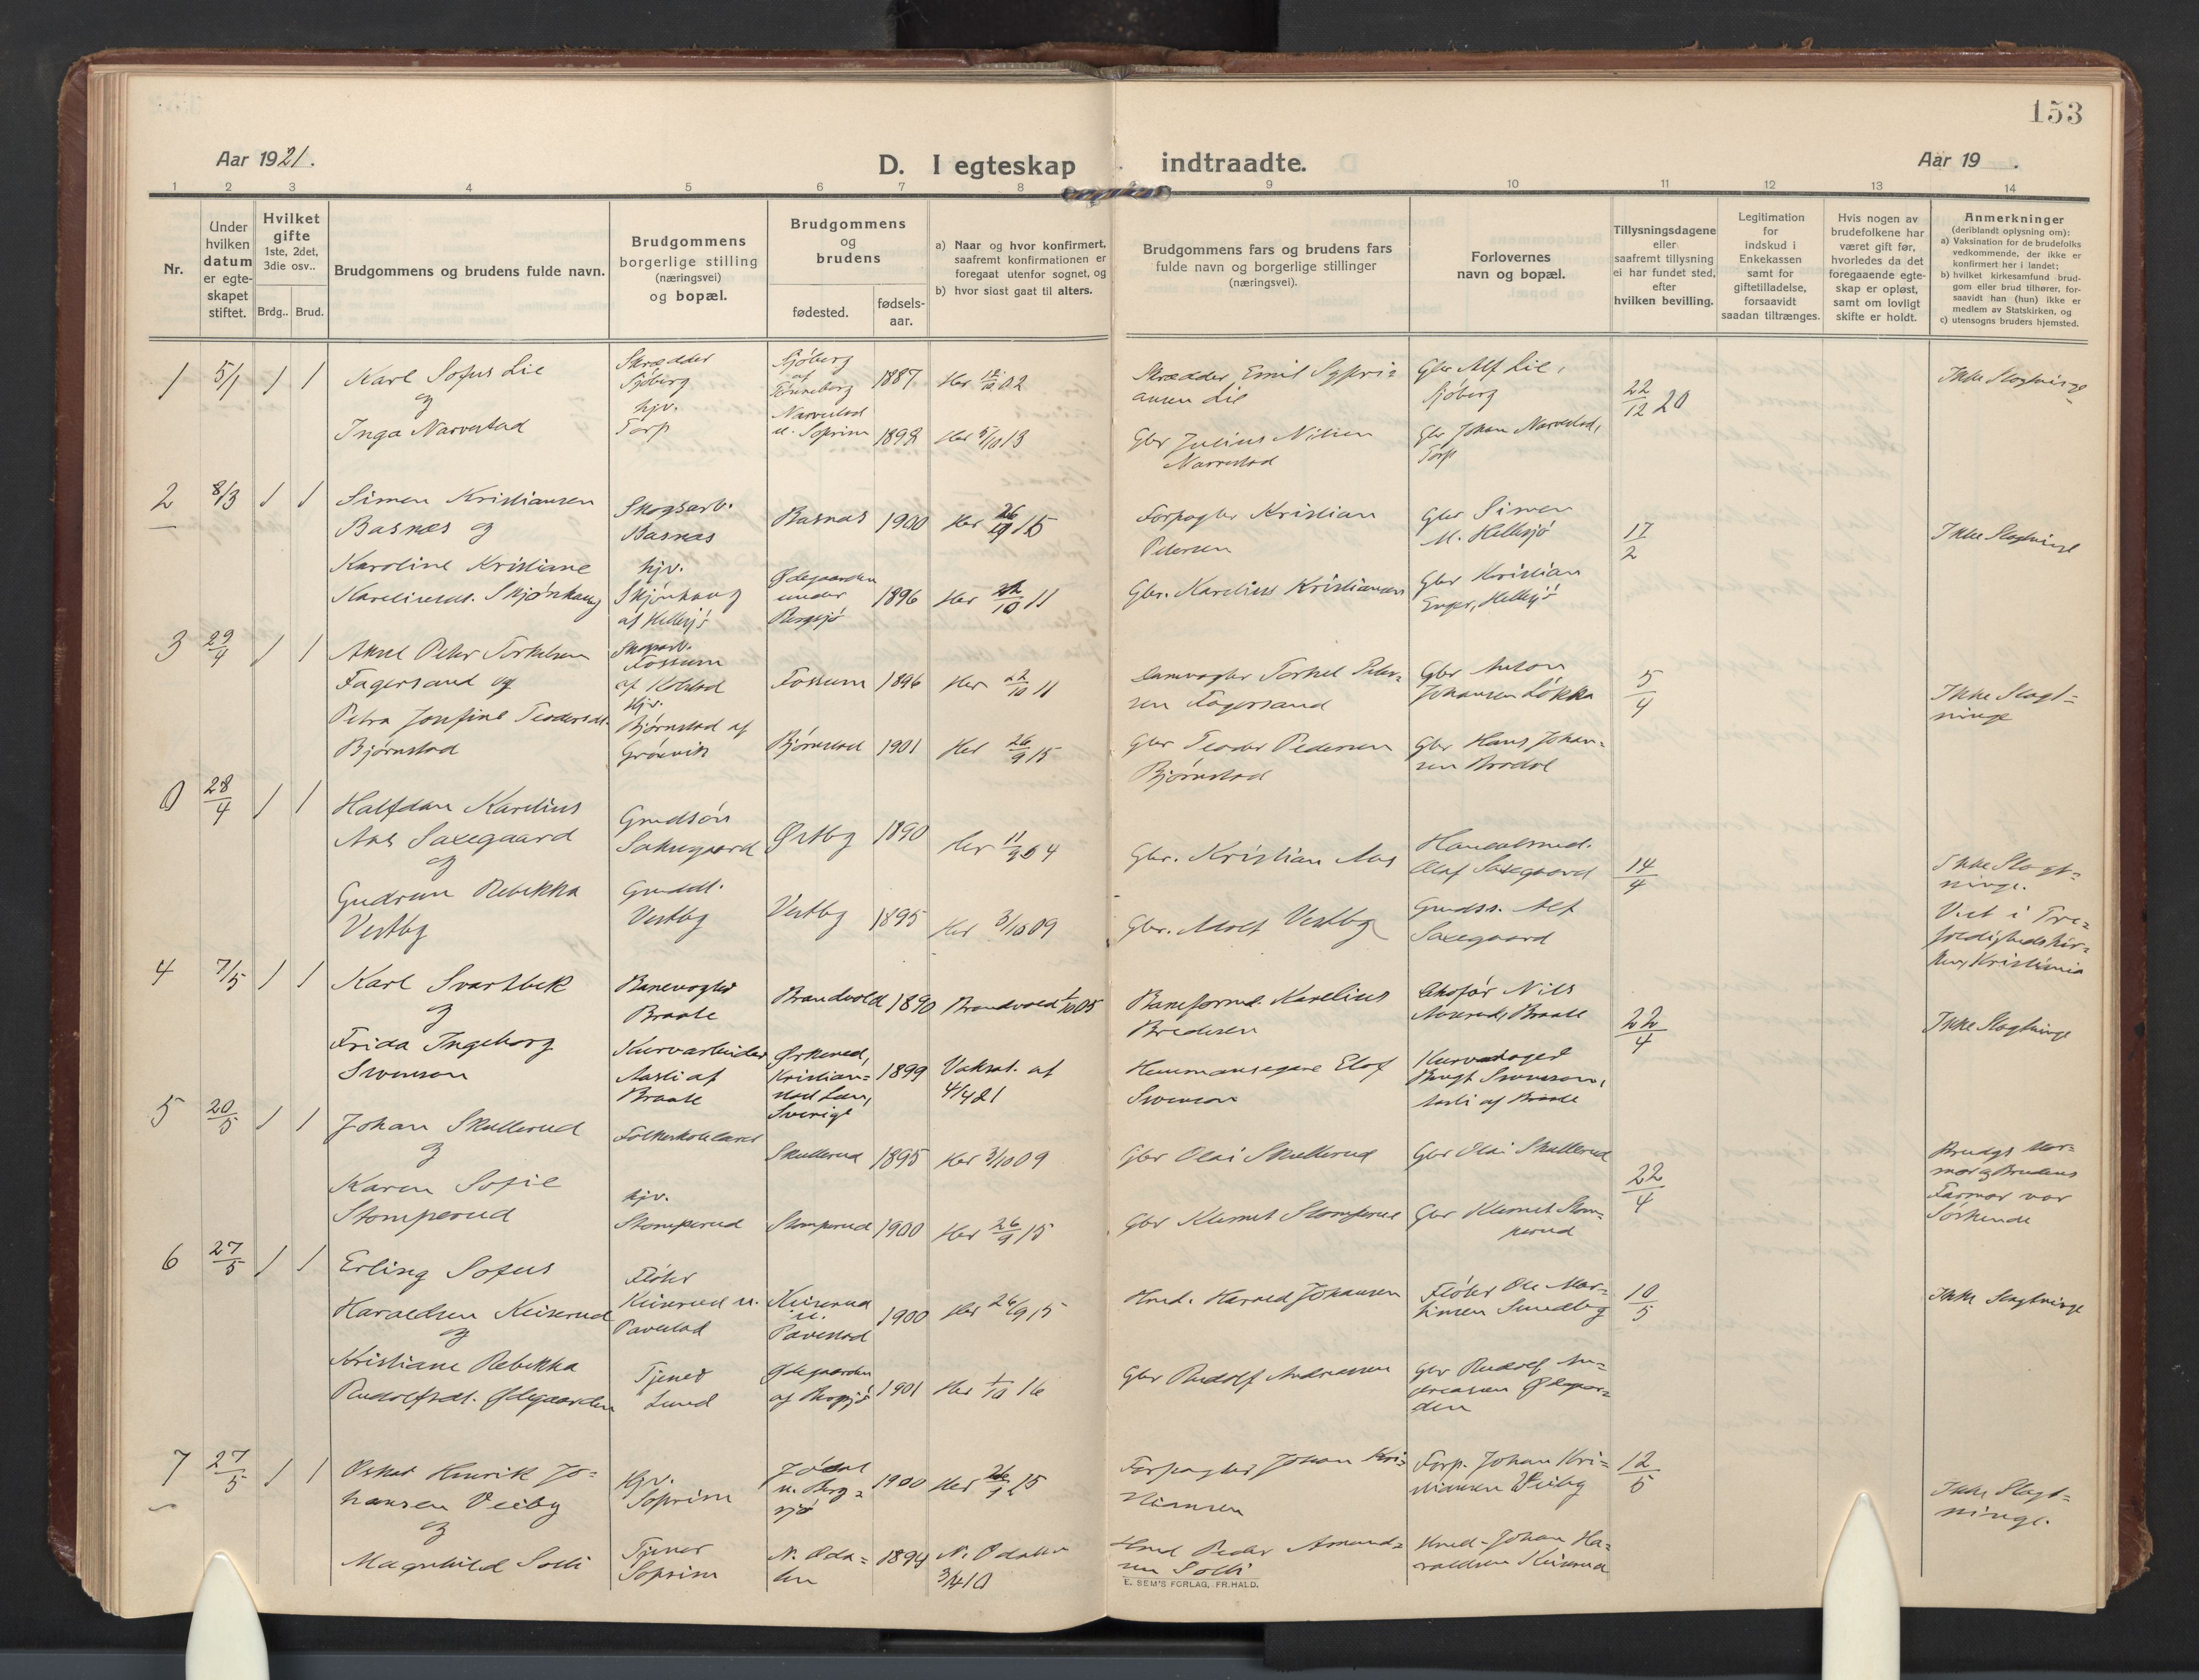 153
Aar 1921.
D. I egteskap indtraadte.
Aar 19 .
1 2 3 4 5 6 7 8 9 10 11 12 13 14
Nr.
Under hvilken datum er egteskapet stiftet.
Hvilket gifte 1ste, 2det, 3die osv..
Brdg.. Brud.
Brudgommens og brudens fulde navn.
Brudgommens borgerlige stilling (næringsvei) og bopæl.
Brudgommens og brudens
fødested. fødselsaar.
a) Naar og hvor konfirmert, saafremt konfirmationen er foregaat utenfor sognet, og
b) hvor sidst gaat til alters.
Brudgommens fars og brudens fars fulde navn og borgerlige stillinger (næringsvei).
Forlovernes navn og bopæl.
Tillysningsdagene eller saafremt tillysning ei har fundet sted, efter hvilken bevilling.
Legitimation for indskud i Enkekassen samt for giftetilladelse, forsaavidt saadan tiltrænges.
Hvis nogen av brudefolkene har været gift før, hvorledes da det foregaaende egteskap er opløst, samt om lovligt skifte er holdt.
Anmerkninger (deriblandt oplysning om):
a) Vaksination for de brudefolks vedkommende, der ikke er konfirmert her i landet;
b) hvilket kirkesamfund brudgom eller brud tilhører, forsaavidt han (hun) ikke er medlem av Statskirken, og
c) utensogns bruders hjemsted.
1 5/1 1 1 Karl Sofus Lie
og
Inga Narvestad
Skrædder
Sjöberg
hjv.
Torp
Sjöberg
af
1887 Her 02
Narvestad
u. Soprim 1898 Her 5/10 13
Skrædder Emil
ansen Lie
Gbr Julius Nilsen
Narvestad
Gbr Alf Lie,
Sjöberg
Gbr Johan Narvestad,
Torp
22/12 20
Ikke Slegtninge
2 8/3 1 1 Simen Kristiansen
Basnæs og
Karoline Kristiane
Kareliusdt. Skjønhaug
Skogsarb.
Basnæs
hjv.
Skjønhaug
af Hellesjö
Basnæs 1900 Her 26/9 15
Ødegaarden
under
Bergsjö
1896 Her 22/10 11
Forpagter Kristian
Petersen
Gbr. Karelius Kristiansen
Gbr Simen
M. Hellesjö
Gbr Kristian
Enger, Hellesjö
17/2
Ikke Slegtninge
3 29/4 1 1 Aksel Peter Torkelsen
Fagersand og
Petra Josefine Teodorsdt.
Bjørnstad
Skogsarb.
Fossum
af Kolstad
Hjv.
Bjørnstad af
Grönvik
Fossum 1896 Her 22/10 11
Bjørnstad 1901 Her 26/9 15
Damvogter Torkel Peter-
sen Fagersand
Gbr Teodor Pedersen
Bjørnstad
Gbr Anton
Johansen Løkka
Gbr Hans Johan-
sen
5/4
Ikke Slegt-
ninge
0 28/4 1 1 Halfdan Karelius
Aas Saxegaard
og
Gudrun Rebekka
Vestby
Grndsön
Saxegaard
Grnddt.
Vestby
Østby 1890 Her 11/9 04
Vestby 1895 Her 3/10 09
Gbr. Kristian Aas
Gbr. Adolf Vestby
Handelsmd.
Olaf Saxegaard
Grndss. Alf
Saxegaard
14/4
Ikke Slegt-
ninge.
Viet i Tre-
foldighedskir-
ken, Kristiania
4 7/5 1 1 Karl Svartbek
og
Frida Ingeborg
Svenson
Banevogter
Braate
Kurvarbeider
Aasli af
Braate
Brandvold 1890 Brandvold 1/10 05
Ørkened,
Kristian-
stad Län,
Sverige
1899 Vaksat. at
4/4 21
Baneformd. Karelius
Bredesen
Hemmansegare Elof
Svenson
Nils
Braate
Bengt Svenson,
Aasli af Braate
22/4
Ikke Slegtninge
5 20/5 1 1 Johan Skullerud
og
Karen Sofie
Stomperud
Folkeskolelærer
hjv.
Stomperud
Skullerud 1895 Her 3/10 09
Stomperud 1900 Her 26/9 15
Gbr Olai Skullerud
Gbr Klemet Stomperud
Gbr Olai Skullerud
Gbr Klemet Stom-
perud
22/4
Brudgs Mor-
mor og Brudens
Farmor var
Søskende
6 27/5 1 1 Erling Sofus
Haraldsen Keiserud
og
Kristiane Rebekka
Rudolfsdt. Ødegaarden
Fløter
Keiserud u.
Pavestad
Tjener
Lund
Keiserud
u.
Pavestad
1900 Her 26/9 15
Ødegaarden
af Bergsjö 1901 Her 1/10 16
Hmd. Harald Johansen
Gbr Rudolf Andreassen
Fløter Ole Mar-
tinsen Sundby
Gbr Rudolf An-
dreassen Ødegaar-
den
10/5
Ikke Slegtninge
7 27/5 1 1 Oskar Henrik Jo-
hansen Veiby
og
Magnhild Solli
Hjv.
Soprim
Tjener
Soprim
u. Berg-
sjö
1900 Her 26/9 15
N. Oda-
len 1894 N. Odalen
3/4 10
Forpagter Johan Kri-
stiansen
Hmd Peder Amund-
sen Solli
Forp. Johan Kri-
stiansen Veiby
Hmd. Johan Ha-
raldsen Keiserud
12/5
Ikke Slegt-
ninge.
E. SEM'S FORLAG, FR.HALD.